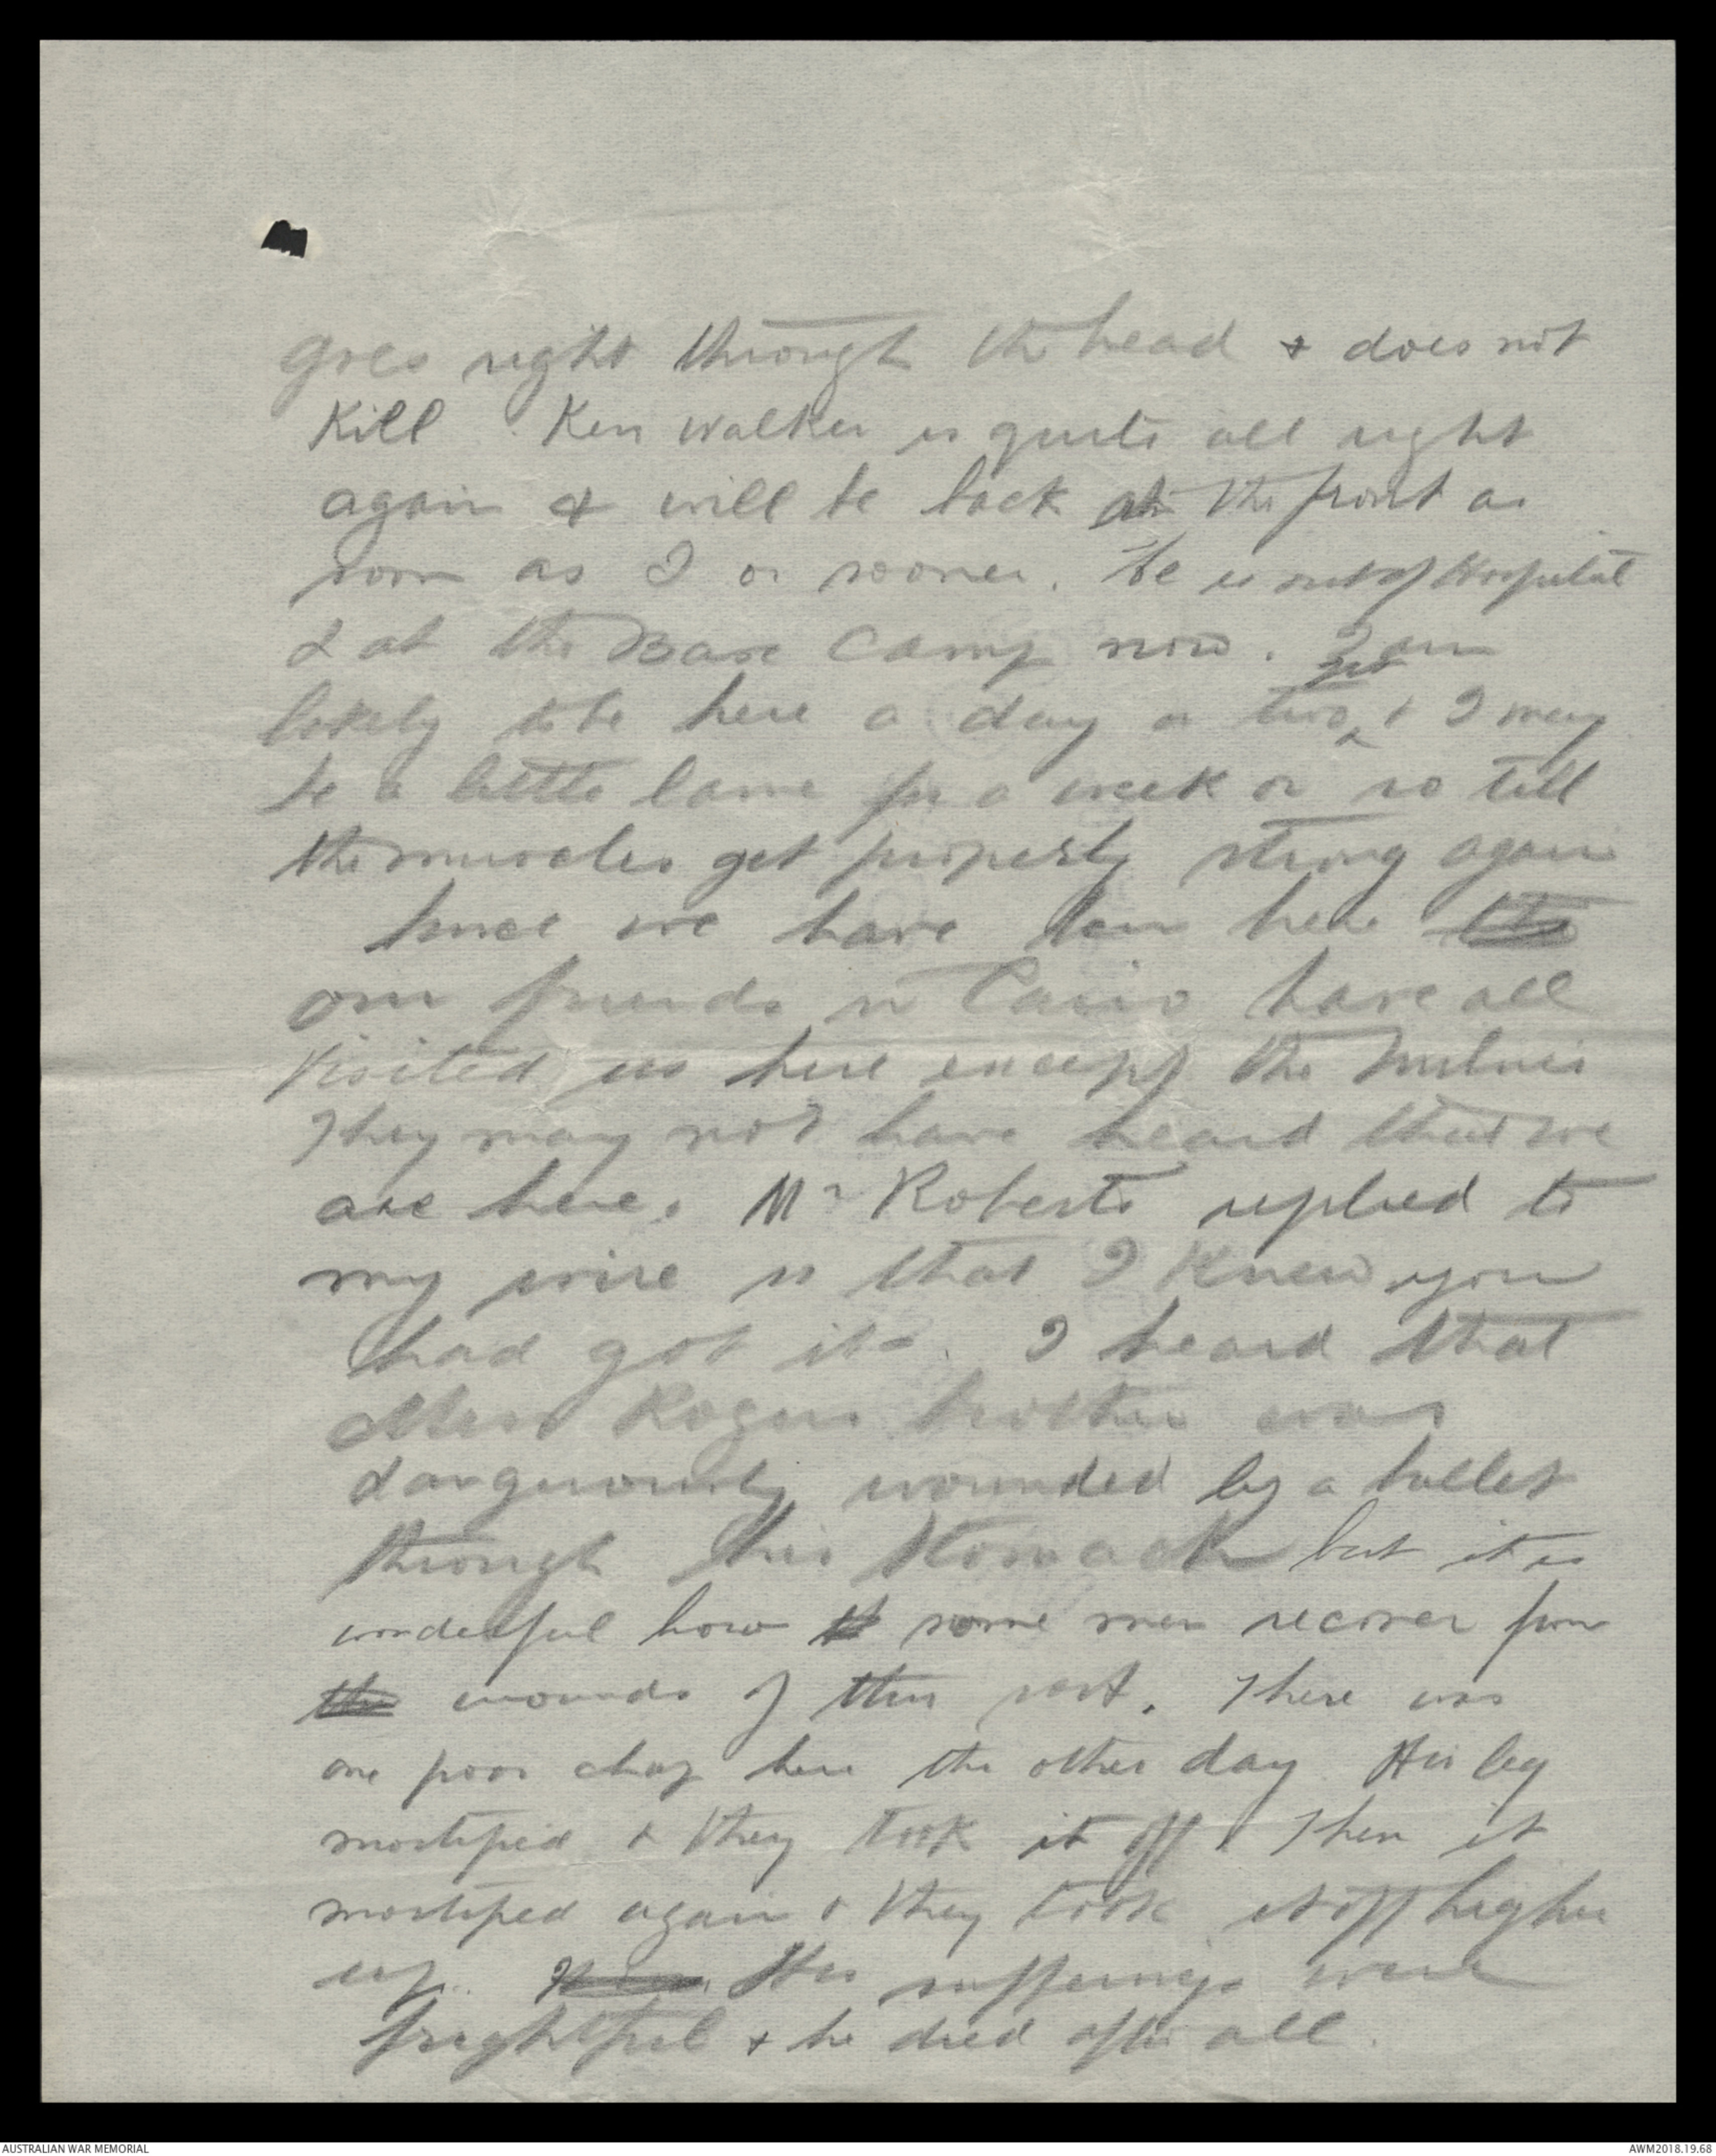 goes right through the head & does not
Kill. Ken Walker is quite all right
again & will be back at the front as
soon as I or sooner. He is out of Hospital
& at the Base Camp now. I am
likely to be here a day or two yet & I may
be a little lame for a week or so till
the muscles get properly strong again
Since we have been here the
our friends in Cairo have all
visited us here except the
They may not have heard that we
are here. Mr Roberts replied to
my wire so that I knew you
had got it. I heard that
Miss Rogers brother was
dangerously wounded by a bullet
through his stomach but it is
wonderful how some men recover from
the wounds of this sort. There was
one poor chap here the other day. His leg
mortified & they took it off. Then it
mortified again & they took it off higher
up. His sufferings were
frightful & he died after all.
AUSTRALIAN WAR MEMORIAL
AWM2018.19.68